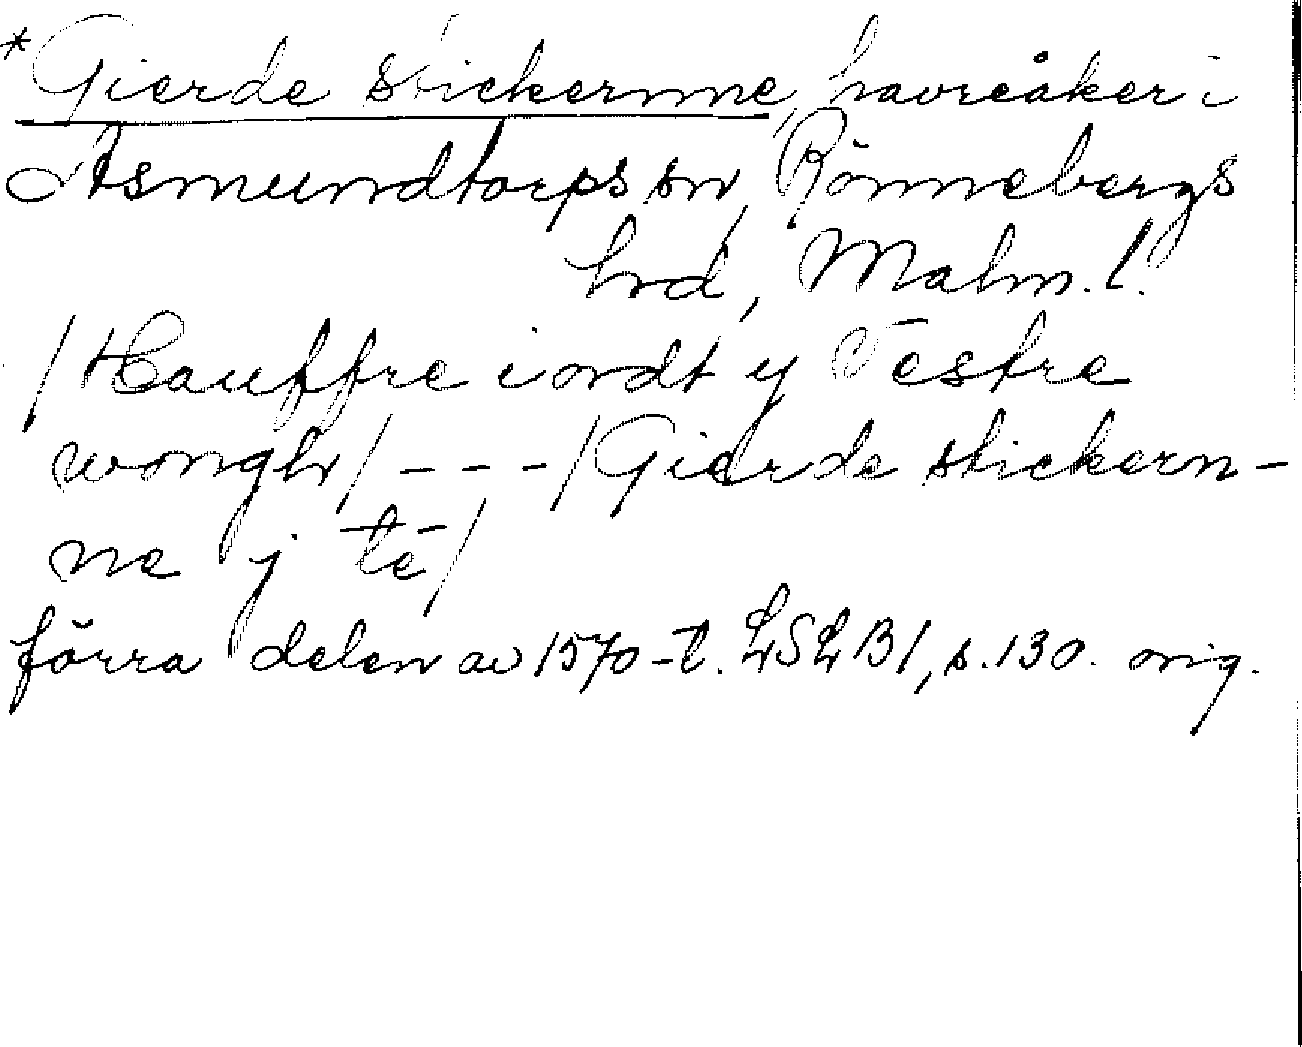 *Gierde stickernne, havreåker i
Asmundtorps sn, Rönnebergs
hrd, Malm. l.
/Hauffre iordt y Vestre
wongh/ - - - /Gierde stickern-
ne j tē/
förra delen av 1570-t. LSLB1, s. 130. orig.